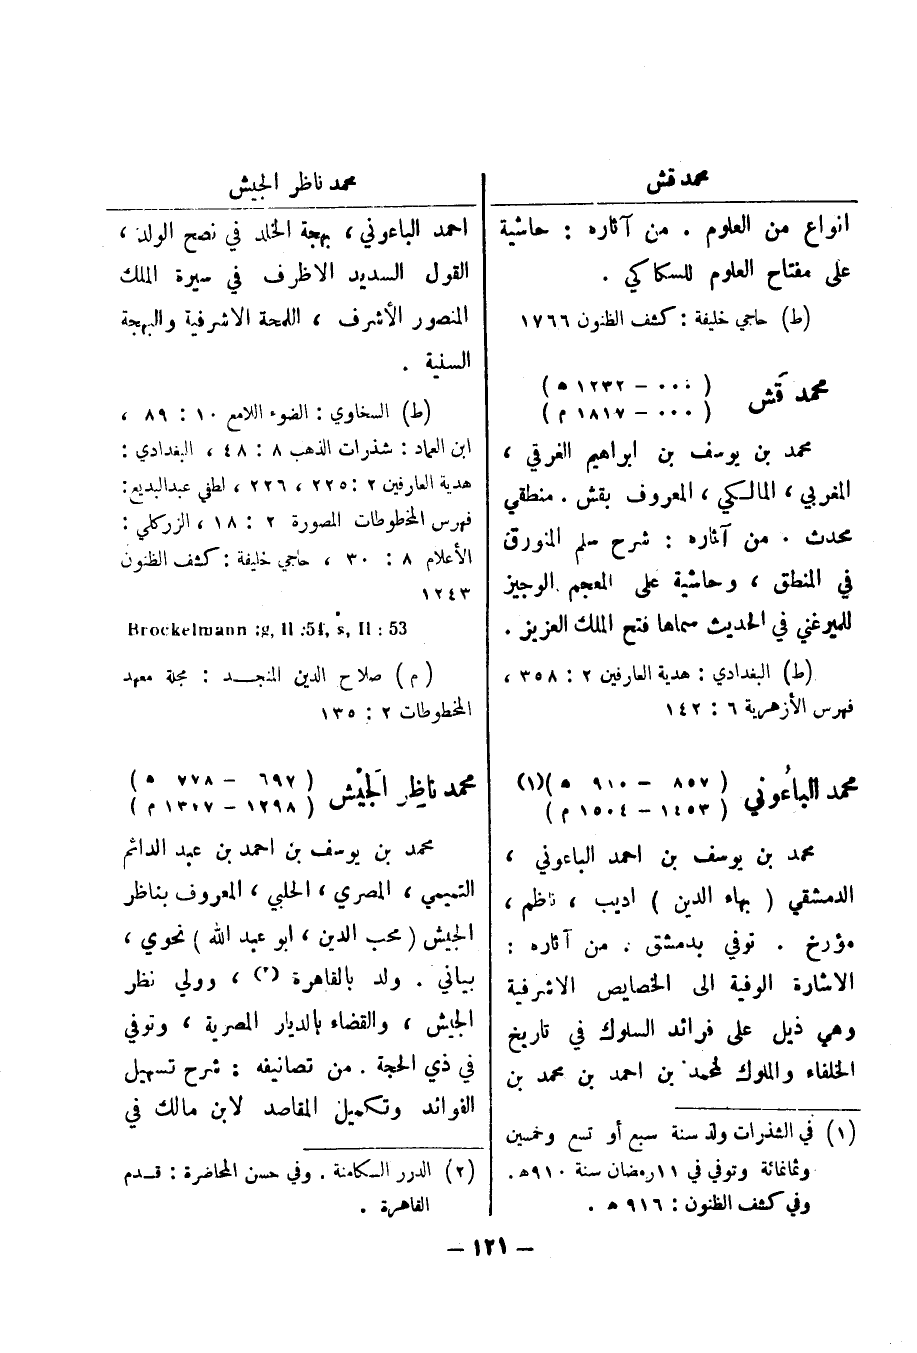 محمد قش
انواع من العلوم . من آثاره : حاشية
على مفتاح العلوم للسكاكي .
(ط) حاجي خليفة : كشف الظنون ١٧٦٦
محمد قَش
( ٠٠٠ – ١٢٣٢ ه )
( ٠٠٠ – ١٨١٧ م )
محمد بن يوسف بن ابراهيم الغرقي ،
المغربي ، المالكي ، المعروف بقش . منطقي
محدث . من آثاره : شرح سلم المنورق
في المنطق ، وحاشية على المعجم الوجيز
للميرغني في الحديث سماها فتح الملك العزيز .
(ط) البغدادي : هدية العارفين ٢ : ٣٥٨ ،
فهرس الأزهرية ٦ : ١٤٢
محمد الباعُوني
( ٨٥٧ – ٩١٠ ه )(١)
( ١٤٥٣ – ١٥٠٤ م )
محمد بن يوسف بن احمد الباعوني ،
الدمشقي ( بهاء الدين ) اديب ، ناظم ،
مؤرخ . توفي بدمشق . من آثاره :
الاشارة الوفية الى الخصايص الاشرفية
وهي ذيل على فرائد السلوك في تاريخ
الخلفاء والملوك لمحمد بن احمد بن محمد بن
(١) في الشذرات ولد سنة سبع أو تسع وخمسين
وثمانمائة وتوفي في ١١ رمضان سنة ٩١٠ه .
وفي كشف الظنون : ٩١٦ ه .
محمد ناظر الجيش
احمد الباعوني ، بهجة الخلد في نصح الولد ،
القول السديد الاظرف في سيرة الملك
المنصور الأشرف ، اللمحة الاشرفية والبهجة
السنية .
(ط) السخاوي : الضوء اللامع ١٠ : ٨٩ ،
ابن العماد : شذرات الذهب ٨ : ٤٨ ، البغدادي :
هدية العارفين ٢ : ٢٢٥ ، ٢٢٦ ، لطفي عبدالبديع :
فهرس المخطوطات المصورة ٢ : ١٨ ، الزركلي :
الأعلام ٨ : ٣٠ ، حاجي خليفة : كشف الظنون
١٢٤٣
Brockelmann :g, II :54, s, II : 53
(م) صلاح الدين المنجد : مجلة معهد
المخطوطات ٢ : ١٣٥
محمد ناظِر الجَيْش
( ٦٩٧ – ٧٧٨ ه )
( ١٢٩٨ – ١٣٠٧ م )
محمد بن يوسف بن احمد بن عبد الدائم
التميمي ، المصري ، الحلبي ، المعروف بناظر
الجيش ( محب الدين ، ابو عبد الله ) نحوي ،
بياني . ولد بالقاهرة (٢) ، وولي نظر
الجيش ، والقضاء بالديار المصرية ، وتوفي
في ذي الحجة . من تصانيفه : شرح تسهيل
الفوائد وتكميل المقاصد لابن مالك في
(٢) الدرر الكامنة . وفي حسن المحاضرة : قدم
القاهرة .
– ١٢١ –